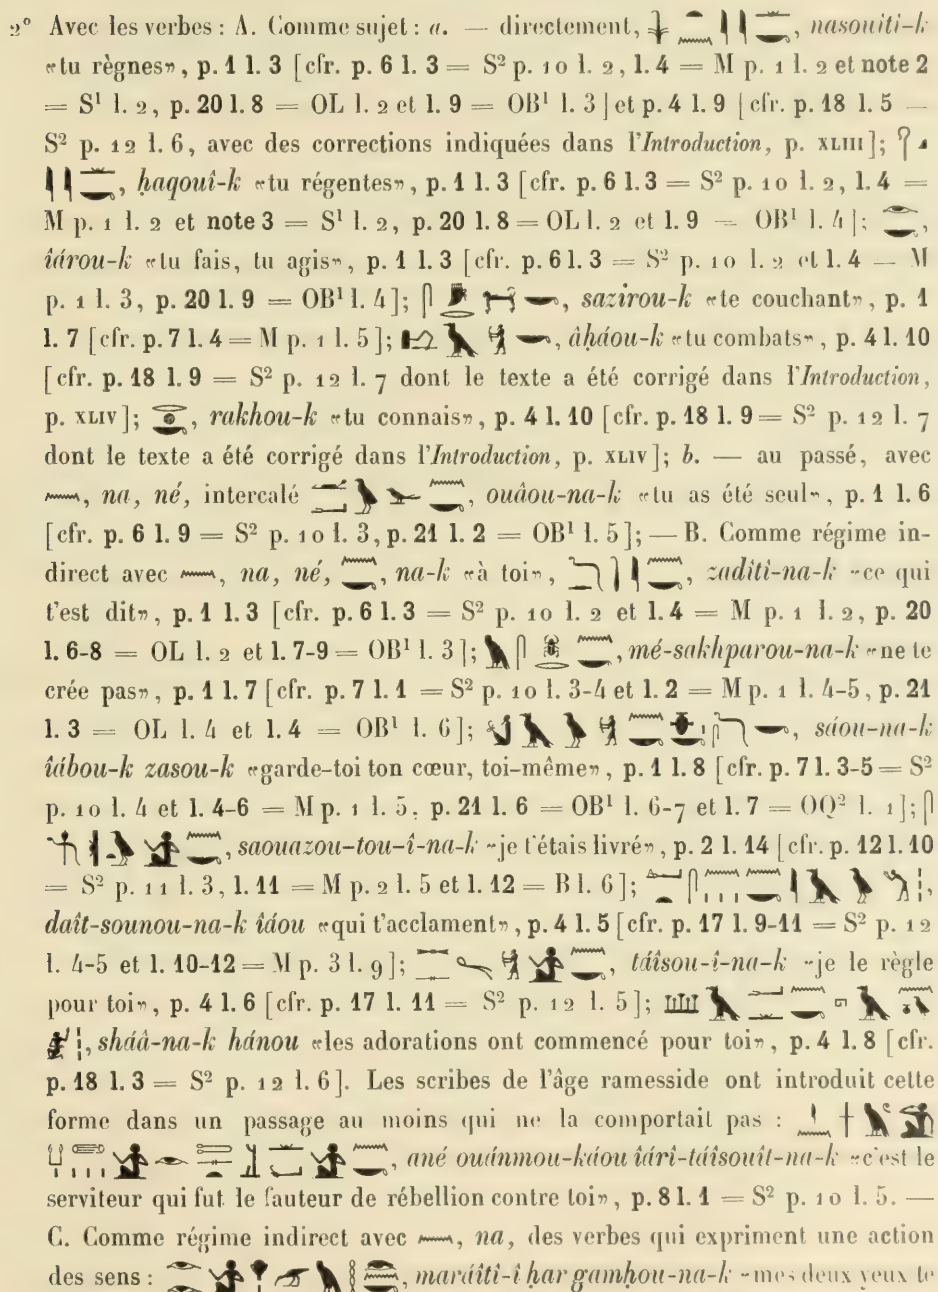 2° Avec les verbes : A. Comme sujet : a. — directement, , nasouiti-k
«tu règnes», p. 1 l. 3 [cfr. p. 6 l. 3 = S² p. 10 l. 2, l. 4 = M p. 1 l. 2 et note 2
= S¹ l. 2, p. 20 l. 8 = OL l. 2 et l. 9 = OB¹ l. 3] et p. 4 l. 9 [cfr. p. 18 l. 5 =
S² p. 12 l. 6, avec des corrections indiquées dans l'Introduction, p. XLIII];
, ḥaqouî-k «tu régentes», p. 1 l. 3 [cfr. p. 6 l. 3 = S² p. 10 l. 2, l. 4 =
M p. 1 l. 2 et note 3 = S¹ l. 2, p. 20 l. 8 = OL l. 2 et l. 9 = OB¹ l. 4]; ,
îárou-k «tu fais, tu agis», p. 1 l. 3 [cfr. p. 6 l. 3 = S² p. 10 l. 2 et l. 4 = M
p. 1 l. 3, p. 20 l. 9 = OB¹ l. 4]; , sazirou-k «te couchant», p. 1
l. 7 [cfr. p. 7 l. 4 = M p. 1 l. 5]; , âḥáou-k «tu combats», p. 4 l. 10
[cfr. p. 18 l. 9 = S² p. 12 l. 7 dont le texte a été corrigé dans l'Introduction,
p. XLIV]; , rakhou-k «tu connais», p. 4 l. 10 [cfr. p. 18 l. 9 = S² p. 12 l. 7
dont le texte a été corrigé dans l'Introduction, p. XLIV]; b. — au passé, avec
, na, né, intercalé , ouâou-na-k «tu as été seul», p. 1 l. 6
[cfr. p. 6 l. 9 = S² p. 10 l. 3, p. 21 l. 2 = OB¹ l. 5]; — B. Comme régime in-
direct avec , na, né, , na-k «à toi», , zadîti-na-k «ce qui
t'est dit», p. 1 l. 3 [cfr. p. 6 l. 3 = S² p. 10 l. 2 et l. 4 = M p. 1 l. 2, p. 20
l. 6-8 = OL l. 2 et l. 7-9 = OB¹ l. 3]; , mé-sakhparou-na-k «ne te
crée pas», p. 1 l. 7 [cfr. p. 7 l. 1 = S² p. 10 l. 3-4 et l. 2 = M p. 1 l. 4-5, p. 21
l. 3 = OL l. 4 et l. 4 = OB¹ l. 6]; , sáou-na-k
îábou-k zasou-k «garde-toi ton cœur, toi-même», p. 1 l. 8 [cfr. p. 7 l. 3-5 = S²
p. 10 l. 4 et l. 4-6 = M p. 1 l. 5, p. 21 l. 6 = OB¹ l. 6-7 et l. 7 = OQ² l. 1];
, saouazou-tou-î-na-k «je t'étais livré», p. 2 l. 14 [cfr. p. 12 l. 10
= S² p. 11 l. 3, l. 11 = M p. 2 l. 5 et l. 12 = B l. 6]; ,
daît-sounou-na-k îáou «qui t'acclament», p. 4 l. 5 [cfr. p. 17 l. 9-11 = S² p. 12
l. 4-5 et l. 10-12 = M p. 3 l. 9]; , táîsou-î-na-k «je le règle
pour toi», p. 4 l. 6 [cfr. p. 17 l. 11 = S² p. 12 l. 5];
, sháâ-na-k hánou «les adorations ont commencé pour toi», p. 4 l. 8 [cfr.
p. 18 l. 3 = S² p. 12 l. 6]. Les scribes de l'âge ramesside ont introduit cette
forme dans un passage au moins qui ne la comportait pas :
, ané ouánmou-káou îárî-táîsouît-na-k «c'est le
serviteur qui fut le fauteur de rébellion contre toi», p. 8 l. 1 = S² p. 10 l. 5. —
C. Comme régime indirect avec , na, des verbes qui expriment une action
des sens : , maráîtî-î ḥar gamḥou-na-k «mes deux yeux te